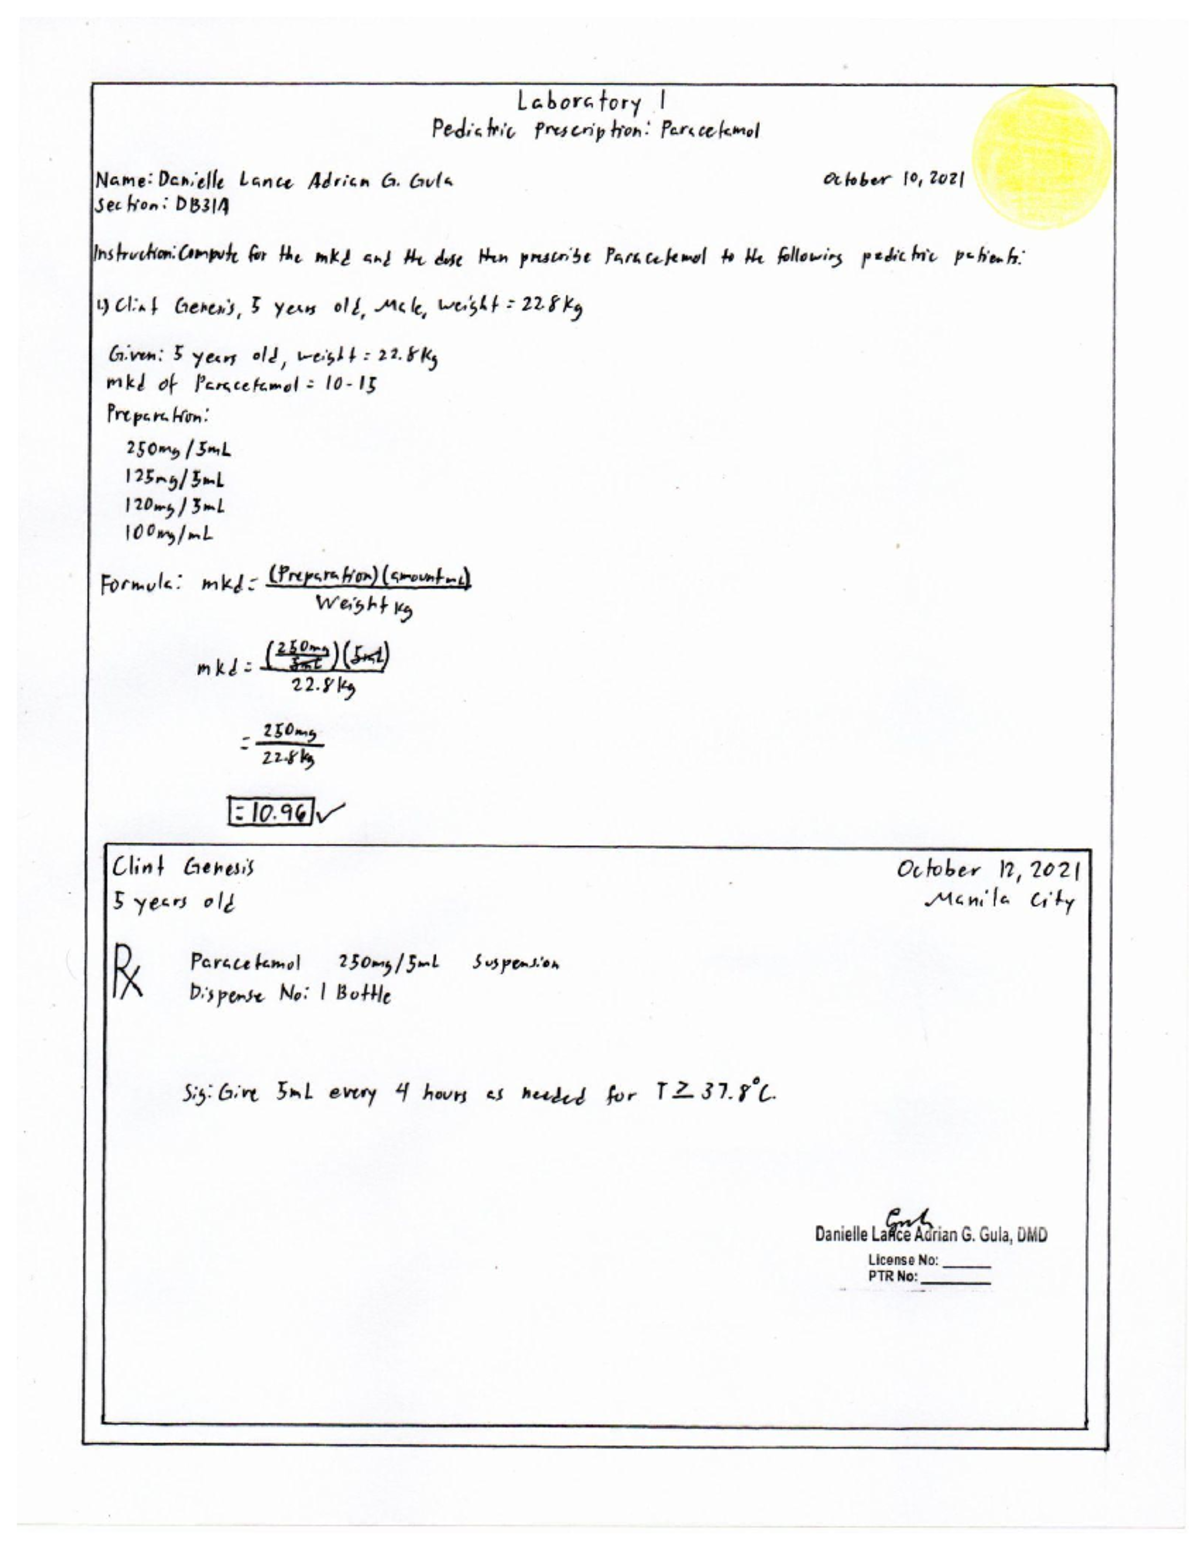 Laboratory 1
Pediatric Prescription: Paracetamol
Name: Danielle Lance Adrian G. Gula
October 10, 2021
Section: DB31A
Instruction: Compute for the mkd and the dose then prescribe Paracetamol to the following pediatric patients:
1.) Clint Genesis, 5 years old, Male, weight = 22.8 kg
Given: 5 years old, weight = 22.8 kg
mkd of Paracetamol = 10-15
Preparation:
250mg/5mL
125mg/5mL
120mg/5mL
100mg/mL
Formula: mkd = (Preparation)(amount mL)
Weight kg
mkd = (250mg/5mL)(5mL)
22.8 kg
= 250mg
22.8 kg
= 10.96 ✓
Clint Genesis
October 12, 2021
5 years old
Manila City
Rx
Paracetamol 250mg/5mL Suspension
Dispense No: 1 Bottle
Sig: Give 5mL every 4 hours as needed for T ≥ 37.8°C.
Danielle Lance Adrian G. Gula, DMD
License No: ______
PTR No: ________